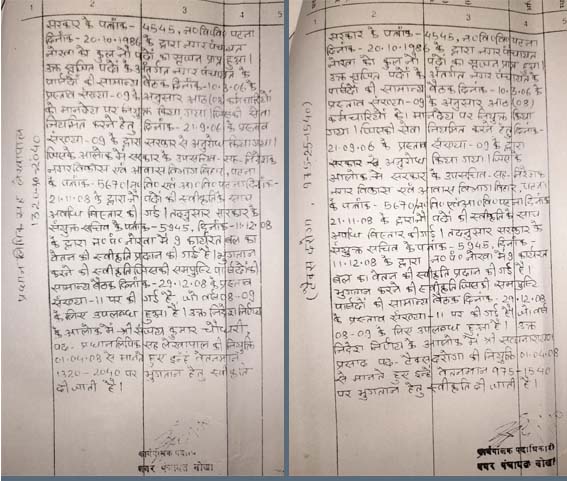 1
2
3
4
5
प्रधान लिपिक सह लेखापाल
1320-30-2040
सरकार के पत्रांक - 4545, न०वि०वि० पटना
दिनांक - 20-10-1986 के द्वारा नगर पंचायत
नोखा को कुल नौ पदों का सृजन प्राप्त हुआ।
उक्त सृजित पदों के अंतर्गत नगर पंचायत के
पार्षदों की सामान्य बैठक दिनांक-10-3-06 के
प्रस्ताव संख्या-09 के अनुसार आठ (08) कर्मचारियों
को मानदेय पर नियुक्त किया गया। जिसकी सेवा
नियमित करने हेतु दिनांक - 21-9-06 के प्रस्ताव
संख्या - 09 के द्वारा सरकार से अनुरोध किया गया।
जिसके आलोक में सरकार के उपसचिव - सह- निदेशक
नगर विकास एवं आवास विभाग बिहार, पटना
के पत्रांक - 5670 दिनांक-
21-11-08 के द्वारा नौ पदों की स्वीकृति के साथ
अवधि विस्तार की गई। तदनुसार सरकार के
संयुक्त सचिव के पत्रांक - 5945, दिनांक - 11-12-08
के द्वारा न० पं० नोखा में 9 कार्यरत बल का
वेतन की स्वीकृति प्रदान की गई है। भुगतान
करने की स्वीकृति जिसकी सम्पुष्टि पार्षदों की
सामान्य बैठक दिनांक - 29-12-08 के प्रस्ताव
संख्या - 11 पर की गई है. जो वर्ष 08-09
के लिए उपलब्ध हुआ है। उक्त निदेश निर्णय
के आलोक में श्री कुमार चौधरी
पद - प्रधान लिपिक सह लेखापाल की नियुक्ति
01-04-08 से मानते हुए इन्हें वेतनमान
1320-2040 पर भुगतान हेतु स्वीकृति
दी जाती है।
कार्यपालक पदा
नगर पंचायत नोखा
1
2
3
4
(टैक्स दरोगा, 975-25-1540)
सरकार के पत्रांक - 4545, न०वि०वि० पटना
दिनांक - 20-10-1986 के द्वारा नगर पंचायत
नोखा को कुल नौ पदों का सृजन प्राप्त हुआ।
उक्त सृजित पदों के अंतर्गत नगर पंचायत के
पार्षदों की सामान्य बैठक दिनांक-10-3-06 के
प्रस्ताव संख्या - 09 के अनुसार आठ (08)
कर्मचारियों को मानदेय पर नियुक्त किया
गया। जिसकी सेवा नियमित करने हेतु दिनांक -
21-09-06 के प्रस्ताव संख्या - 09 के द्वारा
सरकार से अनुरोध किया गया। जिसके
आलोक में सरकार के उपसचिव - सह- निदेशक
नगर विकास एवं आवास विभाग, पटना
के पत्रांक - 5670 दिनांक
21-11-08 के द्वारा नौ पदों की स्वीकृति के साथ
अवधि विस्तार की गई। तदनुसार सरकार के
संयुक्त सचिव के पत्रांक - 5945, दिनांक -
11-12-08 के द्वारा न० पं० नोखा में 9 कार्यरत
बल का वेतन की स्वीकृति प्रदान की गई है।
भुगतान करने की स्वीकृति जिसकी सम्पुष्टि
पार्षदों की सामान्य बैठक दिनांक - 29-12-08
के प्रस्ताव संख्या - 11 पर की गई है। जो वर्ष
08-09 के लिए उपलब्ध हुआ है। उक्त
निदेश निर्णय के आलोक में श्री सत्यनारायण
प्रसाद पद - टैक्स दरोगा की नियुक्ति 01-04-08
से मानते हुए इन्हें वेतनमान 975-1540
पर भुगतान हेतु स्वीकृति दी जाती है।
कार्यपालक पदाधिकारी
नगर पंचायत नोखा